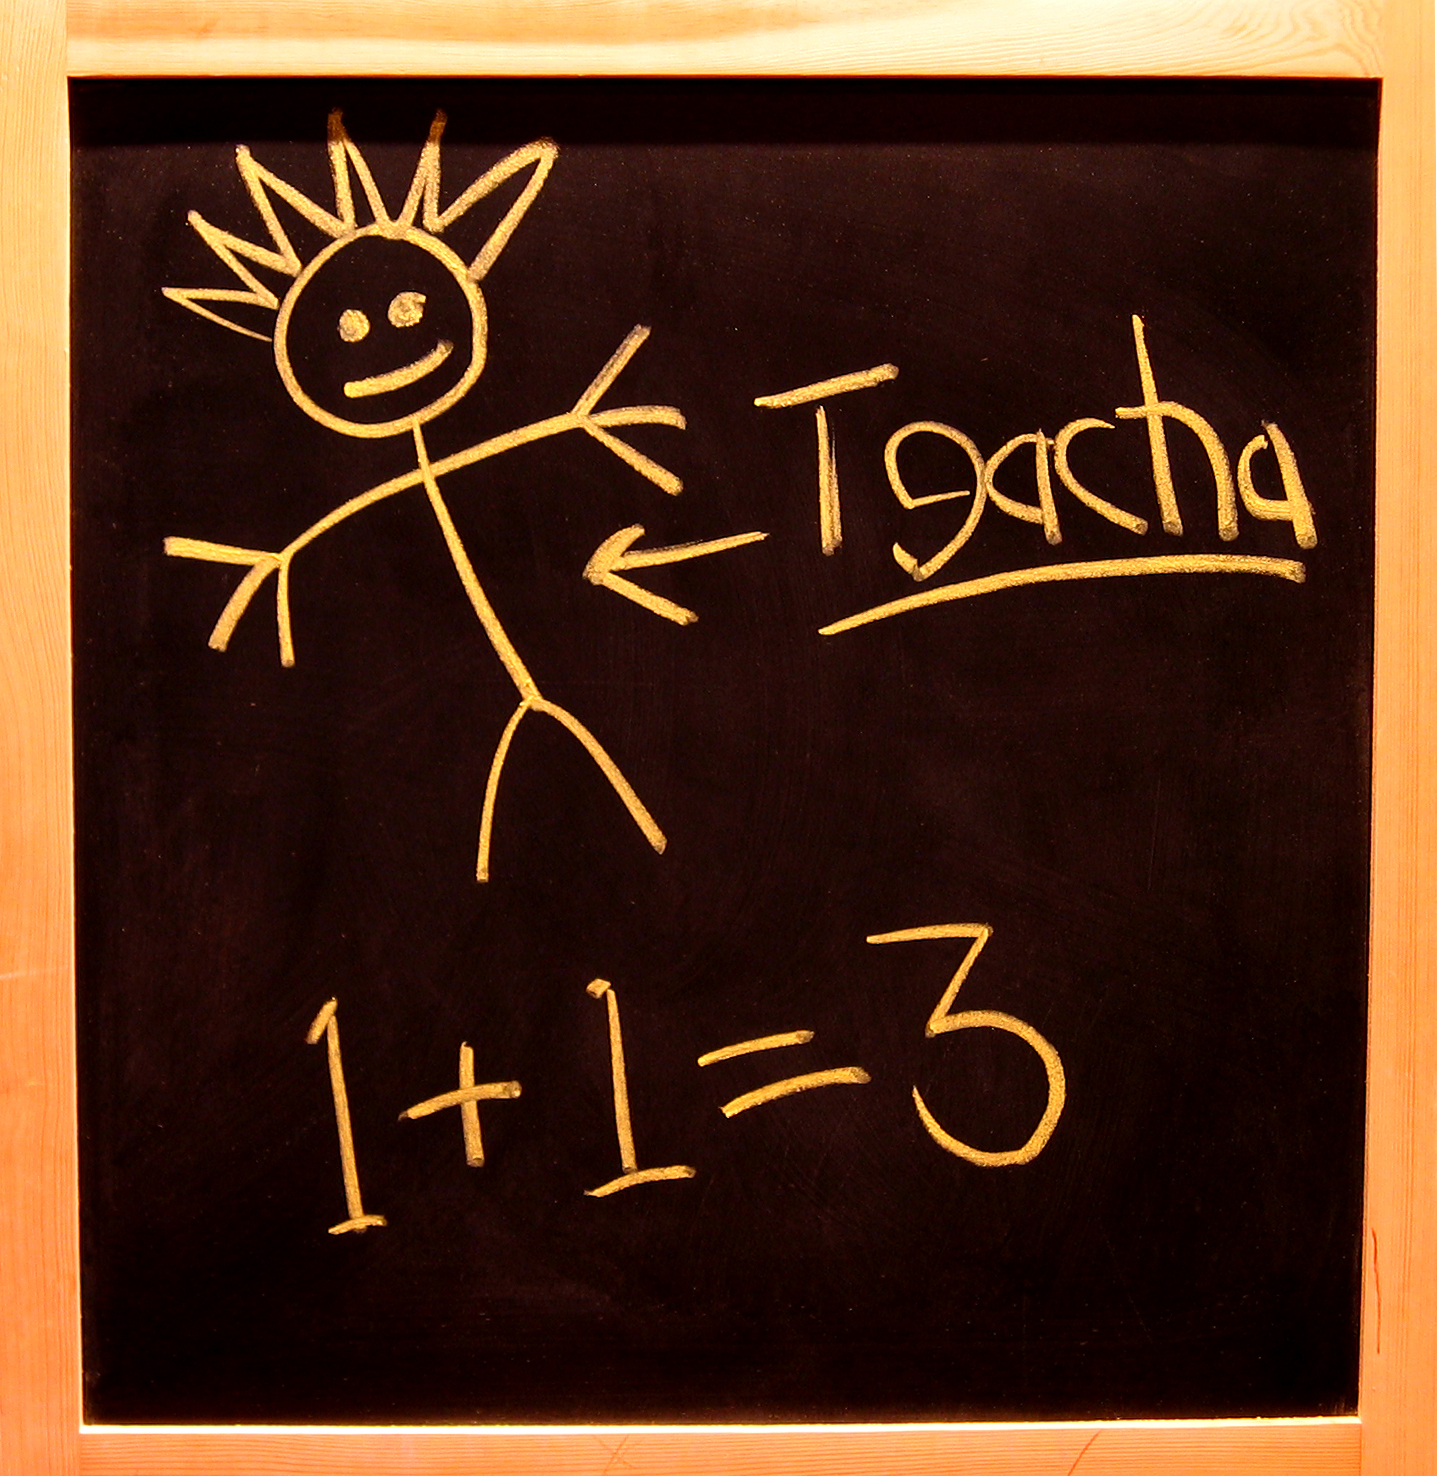 Tgacha
1+1=3